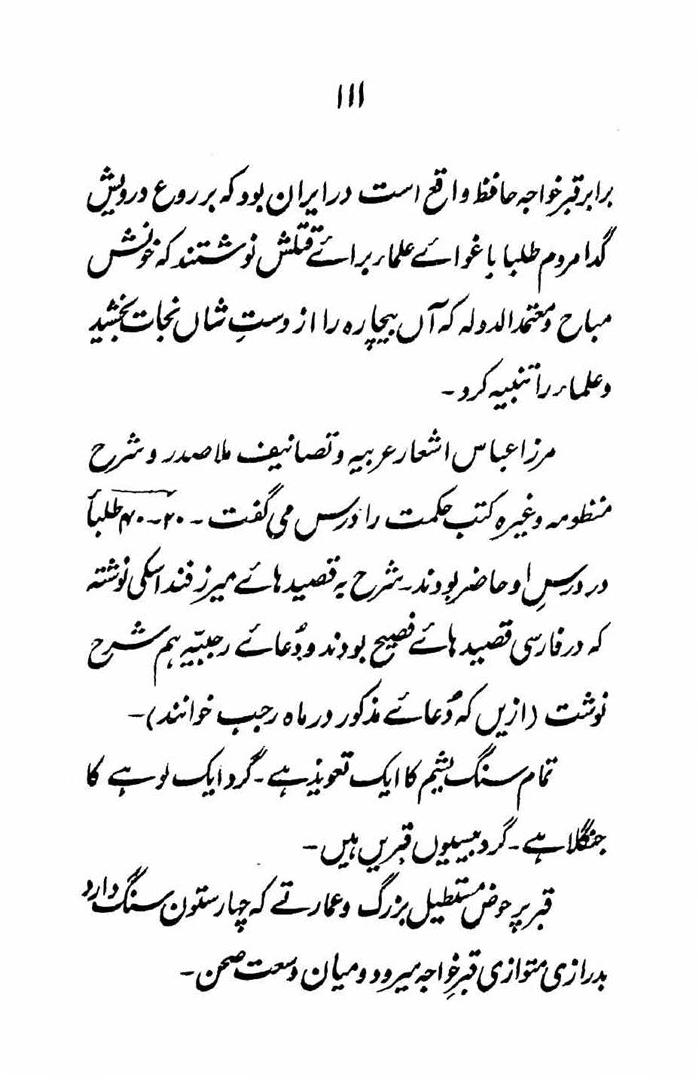 ۱۱۱
برابر قبر خواجہ حافظ واقع است در ایران بود کہ بر روع درویش
گدا مردم طلبا باغوائے علماء برائے قتلش نوشتند کہ خونش
مباح و معتمد الدولہ کہ آں بیچارہ را از دستِ شاں نجات بخشید
و علماء را تنبیہ کرد ۔
مرزا عباس اشعار عربیہ و تصانیف ملا صدر و شرح
منظومہ وغیرہ کتب حکمت را درس می گفت ۔ ۲۰ ۔ ۴۰ طلبا
در درسِ او حاضر بودند ۔ شرح بہ قصیدہائے میرز فندراسکی نوشتہ
کہ در فارسی قصیدہائے فصیح بودند و دُعائے رجبیّہ ہم شرح
نوشت (ازیں کہ دُعائے مذکور در ماہ رجب خوانند) ۔
تمام سنگ یشم کا ایک تعویذ ہے ۔ گرد ایک لوہے کا
جنگلا ہے ۔ گرد بیسیوں قبریں ہیں ۔
قبر پر حوض مستطیل بزرگ و عمارتے کہ چہار ستون سنگ دارد
بدرازی متوازی قبرِ خواجہ میرود و میان وسعت صحن ۔